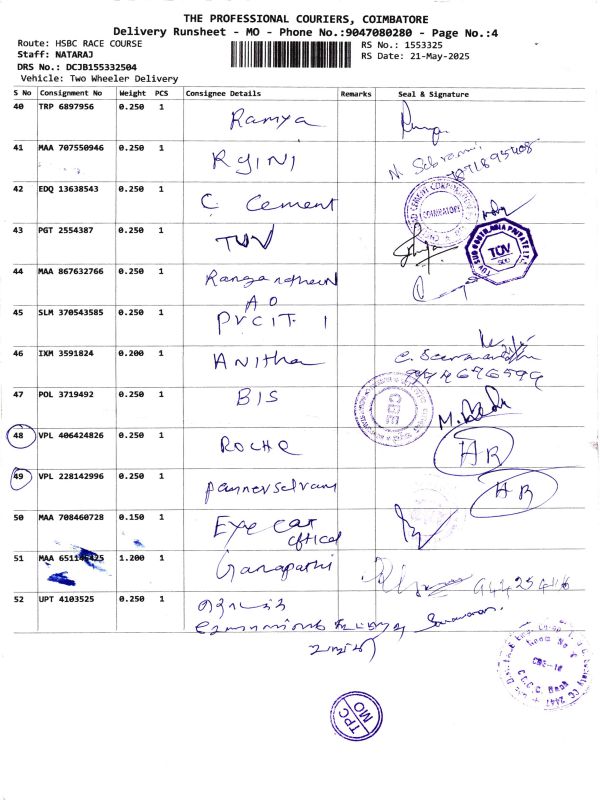 THE PROFESSIONAL COURIERS, COIMBATORE
Delivery Runsheet - MO - Phone No.:9047080280 - Page No.:4
Route: HSBC RACE COURSE
RS No.: 1553325
Staff: NATARAJ
RS Date: 21-May-2025
DRS No.: DCJB155332504
Vehicle: Two Wheeler Delivery
S No Consignment No Weight PCS Consignee Details Remarks Seal & Signature
40 TRP 6897956 0.250 1 Ramya
41 MAA 707550946 0.250 1 RGINI
42 EDQ 13638543 0.250 1 C Cement
COIMBATORE
43 PGT 2554387 0.250 1 TUV
TUV SUD SOUTH ASIA PRIVATE LTD
TÜV
SUD
44 MAA 867632766 0.250 1 Ranganathan
45 SLM 370543585 0.250 1 AO
PVCIT 1
46 IXM 3591824 0.200 1 Anitha
47 POL 3719492 0.250 1 BIS
CBE
48 VPL 406424826 0.250 1 ROCHE HR
49 VPL 228142996 0.250 1 pannerselvam HR
50 MAA 708460728 0.150 1 Eye car
51 MAA 1.200 1 Ganapathi
52 UPT 4103525 0.250 1
CBE-18
C.C.C. Bank
TPC
MO